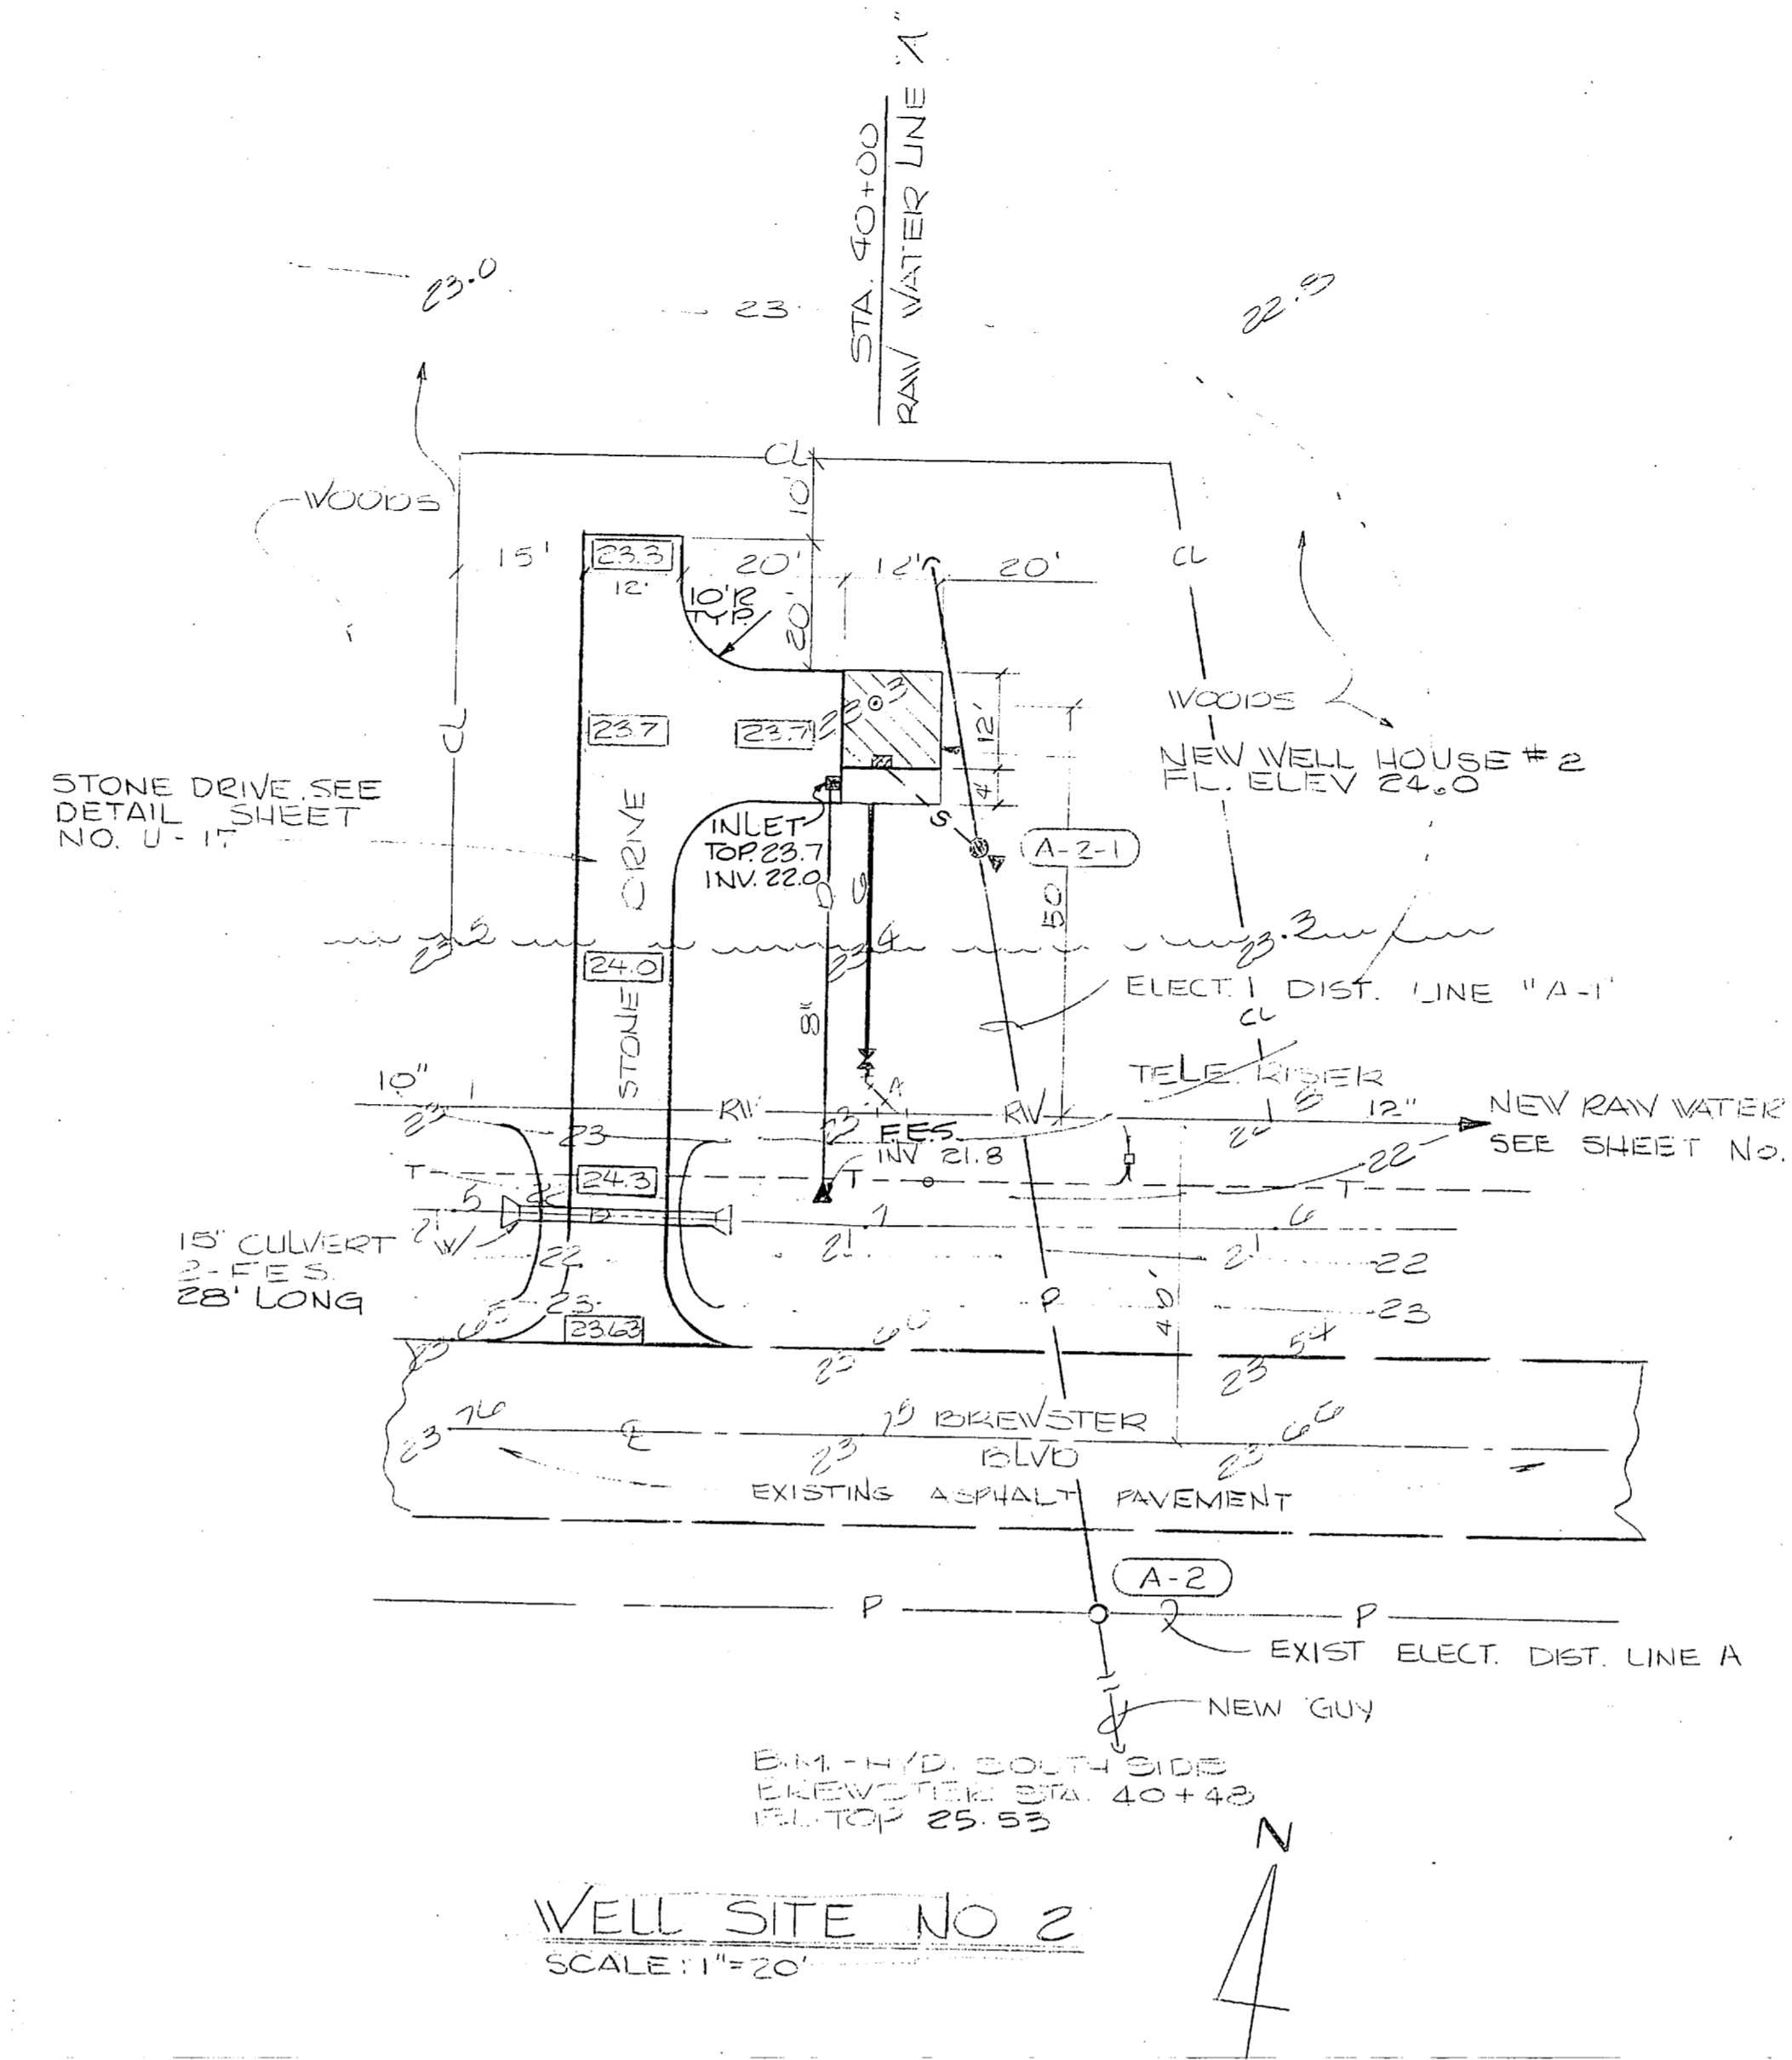 STA. 40+00
RAW WATER LINE "A"
23.0
23
22.9
CL
10'
WOODS
15'
23.3
20'
12'
20'
CL
12'
10'R
TYP.
20'
WOODS
23.7
23.7
12'
CL
NEW WELL HOUSE #2
FL. ELEV 24.0
STONE DRIVE. SEE
DETAIL SHEET
NO. U-17
4'
INLET
TOP. 23.7
INV. 22.0
S
A-2-1
D
6
50
STONE DRIVE
24.0
23.2
8"
ELECT. DIST. LINE "A-1"
CL
TELE. RISER
10"
RW
A
RW
12"
NEW RAW WATER
SEE SHEET NO.
23
F.E.S.
INV 21.8
22
T
24.3
T
T
D
15" CULVERT
2-F.E.S.
28' LONG
22
22
23
P
40'
23
23.63
23 60
23 54
23 76
℄
23 75
BREWSTER
BLVD
23 66
EXISTING ASPHALT PAVEMENT
A-2
P
P
EXIST ELECT. DIST. LINE A
NEW GUY
B.M.-HYD. SOUTH SIDE
BREWSTER STA. 40+48
EL. TOP 25.53
N
WELL SITE NO 2
SCALE: 1"=20'